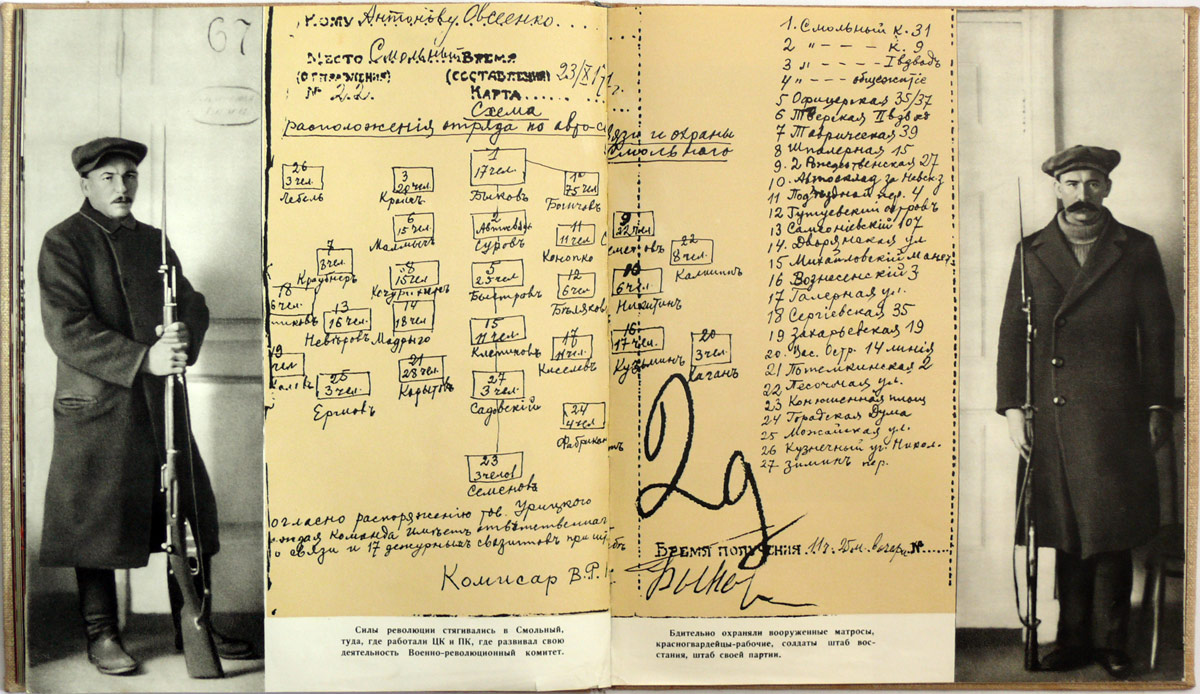 67
Кому Антонову-Овсеенко
Место Смольный Время
(отправления) (составления) 23/X 17 г.
№ 22. Карта
Схема
расположенія отряда по авто-связи и охраны
Смольного
26
3 чел.
Лебель
3
20 чел
1
17 чел.
Быковъ
1а
75 чел
6
15 чел.
2
Суровъ
11
11 чел
Конопко
9
22 чел
22
8 чел.
Калининъ
7
8 чел.
8
15 чел.
5
25 чел
Быстровъ
12
6 чел
Бѣляков
10
6 чел.
Никитинъ
18
6 чел.
13
16 чел.
14
18 чел
15
11 чел
17
11 чел
Киселевъ
16
17 чел
Кузьминъ
20
3 чел
Каганъ
19
чел
25
3 чел.
Ершовъ
21
28 чел
Карытовъ
27
3 чел.
Садовскій
24
4 чел
Фабрикантъ
23
3 челов
Семеновъ
огласно распоряженію тов. Урицкого
команда имѣетъ отвѣтственнаг
о связи и 17 дежурныхъ связистовъ при штабѣ
Комисар В.Р.
1. Смольный к. 31
2 " – – – к. 9
3 " – – – I взводъ
4 " – – – общежитіе
5 Офицерская 35/37
6 Тверская II взвод
7 Таврическая 39
8 Шпалерная 15
9. 2 Рождественская 27
10. Автосклад за Невск. з
11 Подъездной пер. 4
12 Гутуевский островъ
13 Самсоніевскій 107
14. Дворянская ул
15 Михайловскій Манеж
16 Вознесенскій 3
17 Галерная ул.
18 Сергіевская 35
19 Захарьевская 19
20. Вас. Остр. 14 линія
21 Потемкинская 2
22 Песочная ул.
23 Конюшенная площ
24 Городская Дума
25 Можайская ул.
26 Кузнечный уг. Никол.
27 Зиминъ пер.
Время получения 11 ч. 25 м. вечера №
Силы революции стягивались в Смольный,
туда, где работали ЦК и ПК, где развивал свою
деятельность Военно-революционный комитет.
Бдительно охраняли вооруженные матросы,
красногвардейцы-рабочие, солдаты штаб вос-
стания, штаб своей партии.